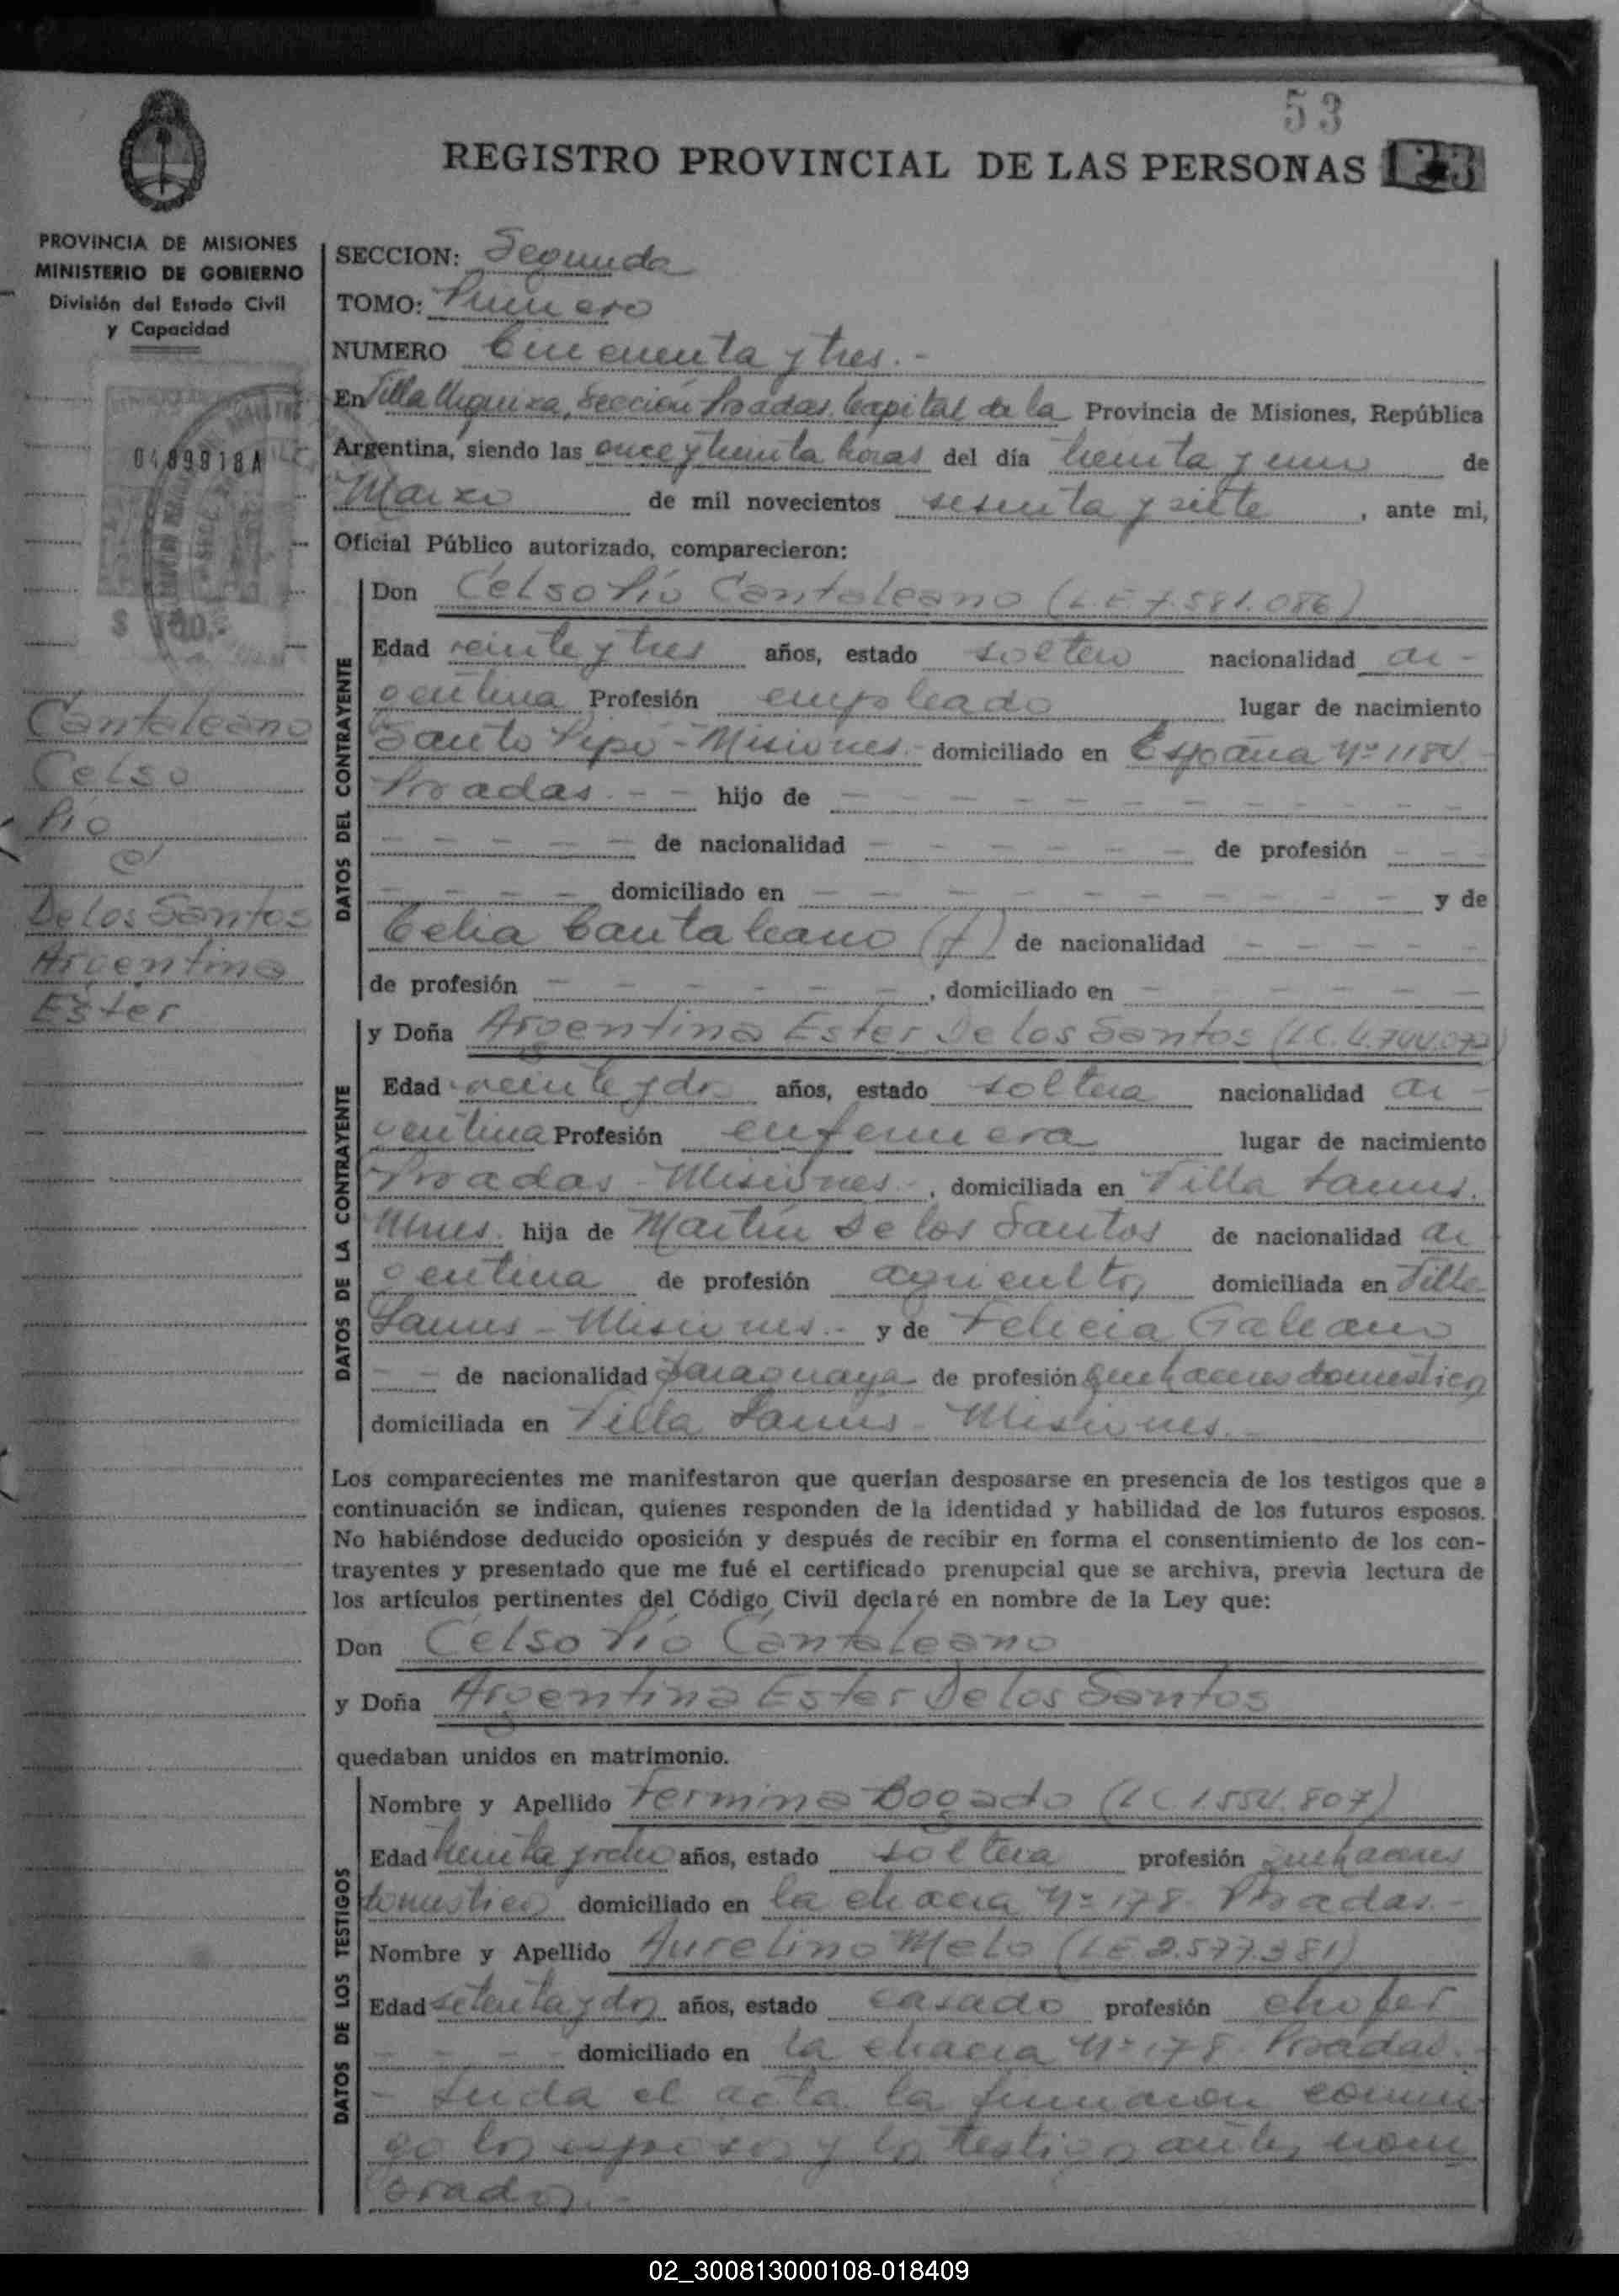 53
REGISTRO PROVINCIAL DE LAS PERSONAS 123
PROVINCIA DE MISIONES
MINISTERIO DE GOBIERNO
División del Estado Civil
y Capacidad
0489918A
$ 100.-
Cantaleano
Celso
Pío
é
De los Santos
Argentina
Ester
SECCION: Segunda
TOMO: Primero
NUMERO Cincuenta y tres.-
En Villa Urquiza, Sección Posadas Capital de la Provincia de Misiones, República
Argentina, siendo las once y treinta horas del día treinta y uno de
Marzo de mil novecientos sesenta y siete, ante mi,
Oficial Público autorizado, comparecieron:
DATOS DEL CONTRAYENTE
Don Celso Pío Cantaleano (L E 7.581.086)
Edad veinte y tres años, estado soltero nacionalidad ar-
gentina Profesión empleado lugar de nacimiento
Santo Pipó - Misiones.- domiciliado en España Nº 1184
Posadas. - - hijo de - - - - - - - - - -
- - - - - de nacionalidad - - - - - - de profesión - - -
- - - - - domiciliado en - - - - - - - - - - y de
Celia Cantaleano (f) de nacionalidad - - - - -
de profesión - - - - - - , domiciliado en - - - - - -
DATOS DE LA CONTRAYENTE
y Doña Argentina Ester De los Santos (L C. 4.744.072)
Edad veinte y dos años, estado soltera nacionalidad ar-
gentina Profesión enfermera lugar de nacimiento
Posadas - Misiones.-, domiciliada en Villa Lanus.
Mnes. hija de Martín De los Santos de nacionalidad ar
gentina de profesión agricultor domiciliada en Villa
Lanus - Misiones.- y de Felicia Galeano
- - de nacionalidad paraguaya de profesión quehaceres domésticos
domiciliada en Villa Lanus - Misiones.-
Los comparecientes me manifestaron que querían desposarse en presencia de los testigos que a
continuación se indican, quienes responden de la identidad y habilidad de los futuros esposos.
No habiéndose deducido oposición y después de recibir en forma el consentimiento de los con-
trayentes y presentado que me fué el certificado prenupcial que se archiva, previa lectura de
los artículos pertinentes del Código Civil declaré en nombre de la Ley que:
Don Celso Pío Cantaleano
y Doña Argentina Ester De los Santos
quedaban unidos en matrimonio.
DATOS DE LOS TESTIGOS
Nombre y Apellido Fermina Bogado (L C 1.554.807)
Edad treinta y ocho años, estado soltera profesión quehaceres
domésticos domiciliado en la chacra Nº 178 - Posadas.-
Nombre y Apellido Aurelino Melo (L E 2.577.381)
Edad setenta y dos años, estado casado profesión chofer
- - - - domiciliado en la chacra Nº 178 - Posadas.-
- Leída el acta la firmaron conmi-
go los esposos y los testigos antes nom
brados.-
02_300813000108-018409